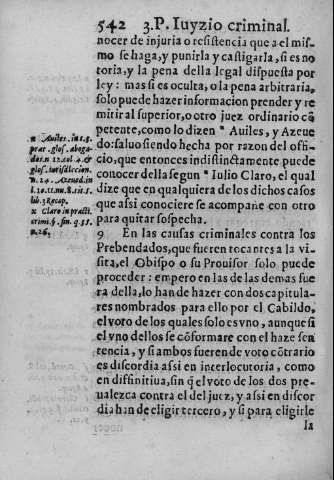 542 3.P. Iuyzio criminal.
nocer de injuria o resistencia que a el mis-
mo se haga, y punirla y castigarla, si es no
toria, y la pena della legal dispuesta por
ley: mas si es oculta, o la pena arbitraria,
solo puede hazer informacion prender y re
mitir al superior, o otro juez ordinario cõ
petente, como lo dizen ⁿ Auiles, y Azeue
do: saluo siendo hecha por razon del offi-
cio, que entonces indistinctamente puede
conocer della segun ˣ Iulio Claro, el qual
dize que en qualquiera de los dichos casos
que assi conociere se acompañe con otro
para quitar sospecha.
9 En las causas criminales contra los
Prebendados, que fueren tocantes a la vi-
sita, el Obispo o su Prouisor solo puede
proceder: empero en las de las demas fue
ra della, lo han de hazer con dos capitula-
res nombrados para ello por el Cabildo,
el voto de los quales solo es vno, aunque si
el vno dellos se cõformare con el haze sen
tencia, y si ambos fueren de voto cõtrario
es discordia assi en interlocutoria, como
en diffinitiua, sin q̃ el voto de los dos pre-
ualezca contra el del juez, y assi en discor
dia han de eligir tercero, y si para eligirle
la
n Auiles. in c. 9.
præt. glos. aboga-
dos. n 12. col. 4. &
glos. iurisdiccion.
n. 24. Azeued. in
l. 10. tit. 
lib. 3 Recop.
x Claro in practi.
crimi. §. fin. q. 35.
n. 26.